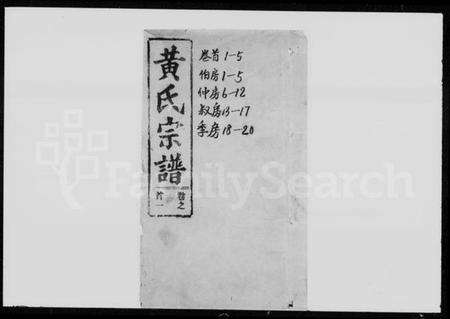 黄氏宗譜
卷之
首一
卷首1-5
伯房1-5
仲房6-12
叔房13-17
季房18-20
FamilySearch